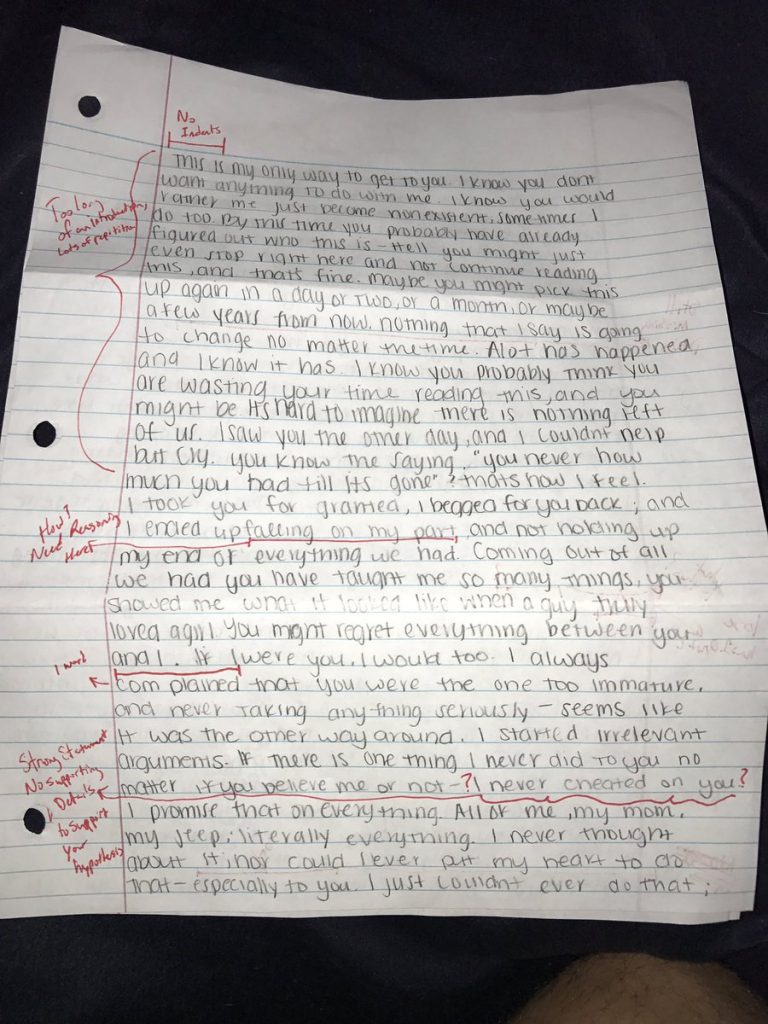 No
Indents
This is my only way to get to you. I know you dont
want anything to do with me. I know you would
rather me just become nonexistent, sometimes I
do too. By this time you probably have already
figured out who this is - Hell you might just
even stop right here and not continue reading
this, and thats fine. maybe you might pick this
up again in a day or two, or a month, or maybe
a few years from now. nothing that I say is going
to change no matter the time. Alot has happened,
and I know it has. I know you probably think you
are wasting your time reading this, and you
might be Its hard to imagine there is nothing left
of us. I saw you the other day, and I couldnt help
but cry. you know the saying, "you never how
much you had till its gone"? thats how I feel.
I took you for granted, I begged for you back; and
I ended up falling on my part, and not holding up
my end of everything we had. Coming out of all
we had you have taught me so many things, you
showed me what it looked like when a guy truly
loved a girl you might regret everything between you
and I. If I were you, I would too. I always
complained that you were the one too immature,
and never taking anything seriously - seems like
it was the other way around. I started irrelevant
arguments. If there is one thing I never did to you no
matter if you believe me or not -? I never cheated on you?
I promise that on everything. All of me, my mom,
my jeep; literally everything. I never thought
about it; nor could I ever put my heart to do
that - especially to you. I just couldnt ever do that;
Too long
of an Introduction,
Lots of repetition
How?
Need Reasoning
Here
1 word
Strong Statement
No supporting
Details
to support
your
hypothesis